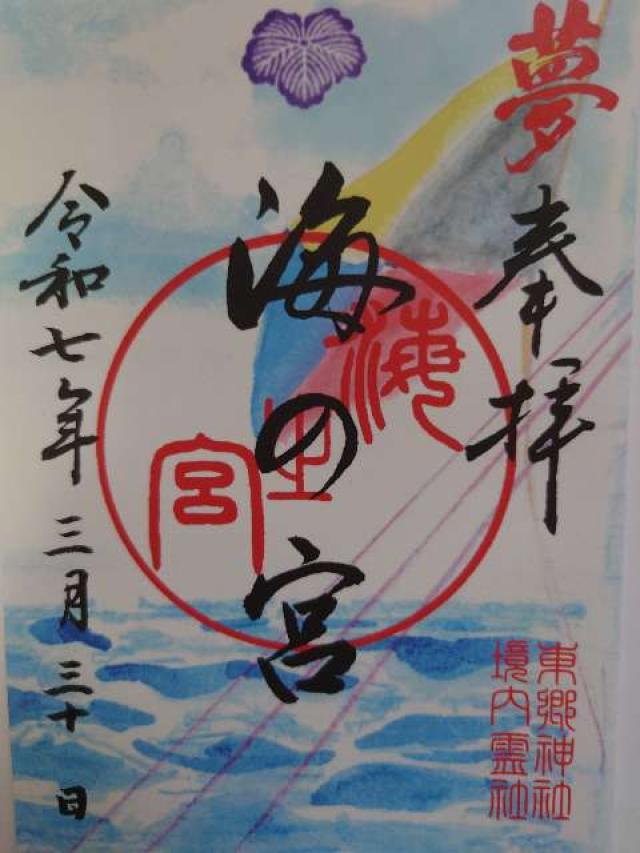 夢
奉拝
東郷神社
境内霊社
海の宮
海
宮
令和七年三月三十日